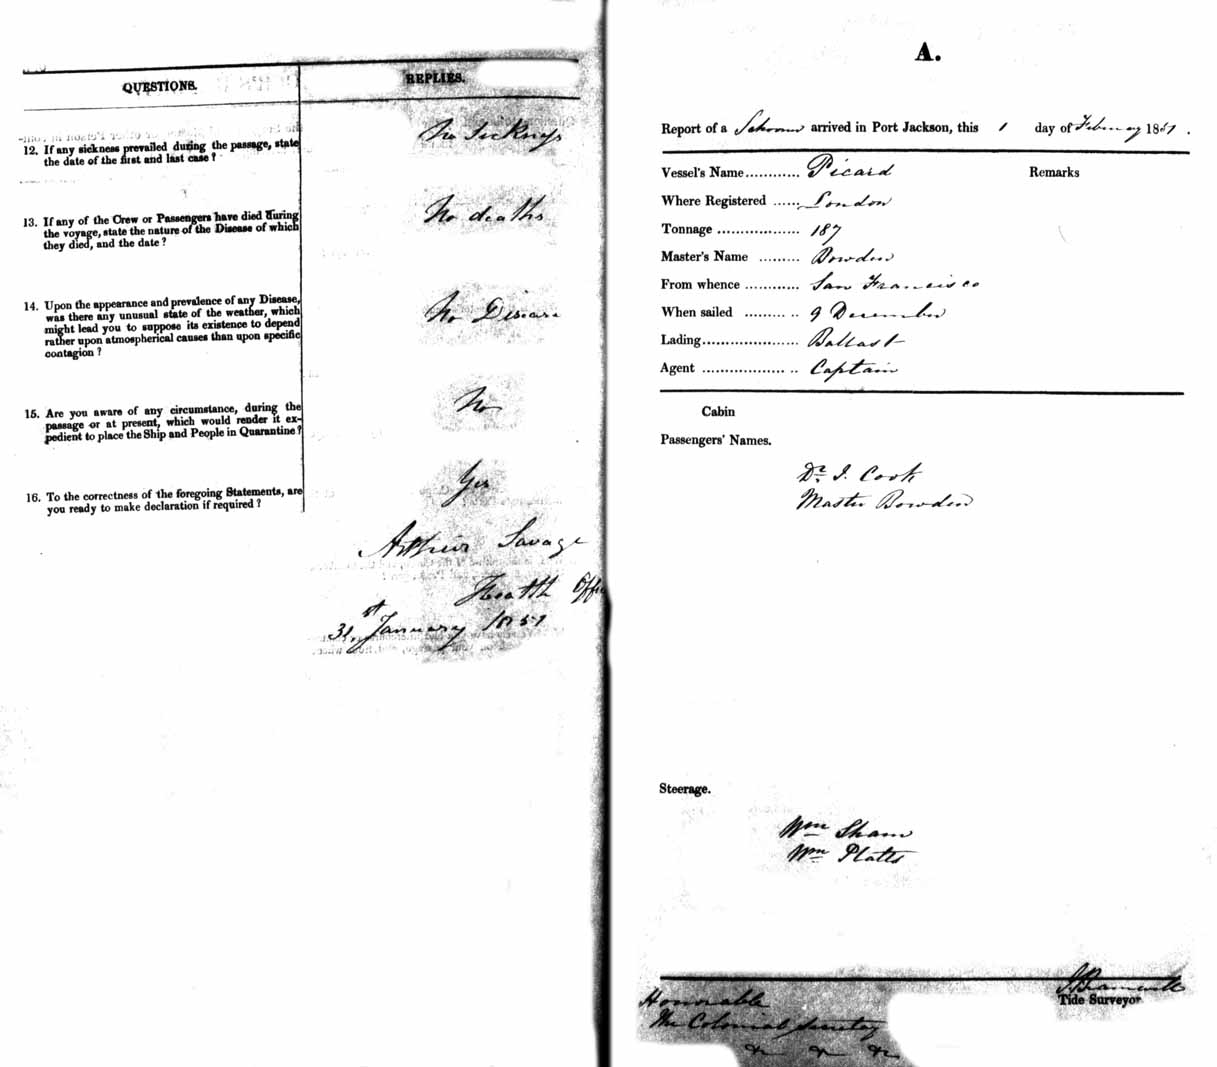 QUESTIONS.
REPLIES.
12. If any sickness prevailed during the passage, state
the date of the first and last case ?
No Sickness
13. If any of the Crew or Passengers have died during
the voyage, state the nature of the Disease of which
they died, and the date ?
No deaths
14. Upon the appearance and prevalence of any Disease,
was there any unusual state of the weather, which
might lead you to suppose its existence to depend
rather upon atmospherical causes than upon specific
contagion ?
No Disease
15. Are you aware of any circumstance, during the
passage or at present, which would render it ex-
pedient to place the Ship and People in Quarantine ?
No
16. To the correctness of the foregoing Statements, are
you ready to make declaration if required ?
Yes
Arthur Savage
Health Offi
31st January 1851
A.
Report of a Schooner arrived in Port Jackson, this 1 day of February 1851.
Vessel's Name............ Picard
Remarks
Where Registered ...... London
Tonnage .................. 187
Master's Name ......... Bowden
From whence ............ San Francisco
When sailed ............ 9 December
Lading..................... Ballast
Agent ..................... Captain
Cabin
Passengers' Names.
Dr. J. Cook
Master Bowden
Steerage.
Wm Sham
Wm Platts
Tide Surveyor
Honorable
The Colonial Secretary
&c &c &c